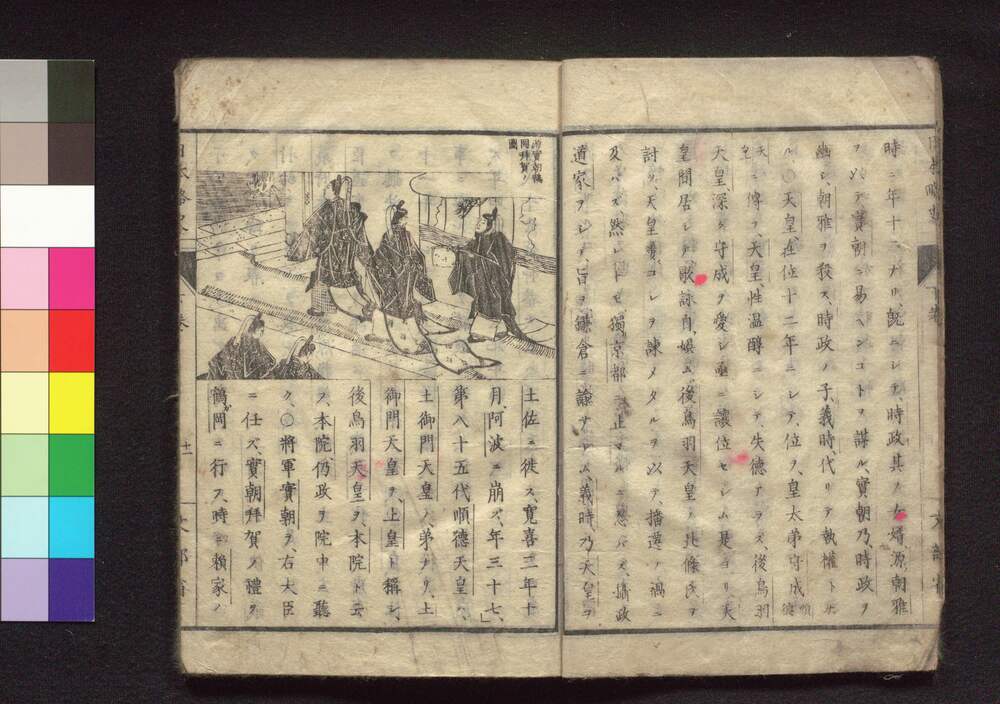 時ニ年十二ナリ、既ニシテ、時政其ノ女婿源朝雅
ヲ以テ實朝ニ易ヘンコトヲ謀ル、實朝乃、時政ヲ
幽シ、朝雅ヲ殺ス、時政ノ子、義時、代リテ執權トナ
ル、〇天皇、在位十二年ニシテ、位ヲ、皇太弟守成順德
天皇ニ傳フ、天皇性溫醇ニシテ、失德アラズ、後鳥羽
天皇、深ク守成ヲ愛シ、亟ニ讓位セシム、是ヨリ、天
皇閒居シテ、歌詠自、娯ム、後鳥羽天皇ノ北條氏ヲ
討ツ、天皇、コレヲ諫メタルヲ以テ、播遷ノ禍ニ
及バズ、然レドモ獨、京都ニ止マルニ忍ビズ、攝政
道家ヲシテ、旨ヲ鎌倉ニ諭サシム、義時、乃天皇ヲ
源實朝鶴
岡拜賀ノ
圖
土佐ニ徙ス、寛喜三年十
月、阿波ニ崩ズ、年三十七、」
第八十五代順德天皇ハ、
土御門天皇ノ、弟ナリ、土
御門天皇ヲ、上皇ト稱シ、
後鳥羽天皇ヲ、本院ト云
フ、本院仍政ヲ院中ニ聽
ク、〇將軍實朝ヲ、右大臣
ニ任ズ、實朝拜賀ノ禮ヲ
鶴岡ニ行フ、時ニ賴家ノ
十一
文部省